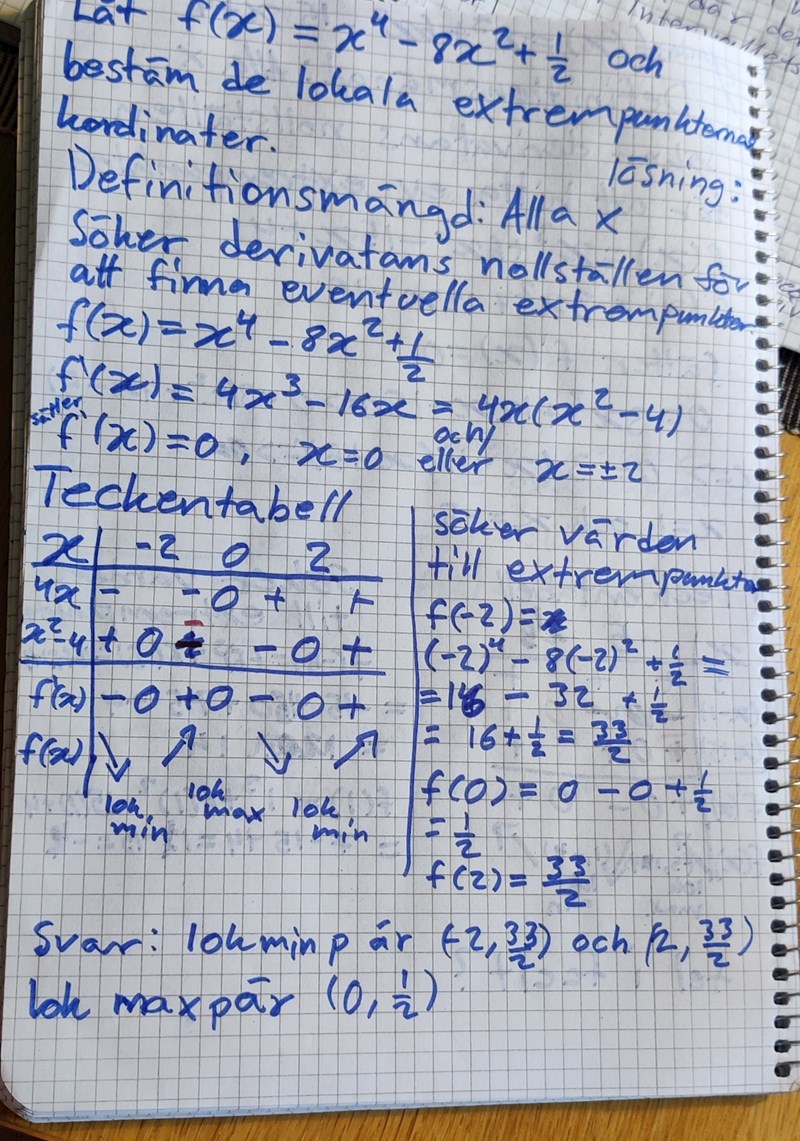 Låt f(x) = x⁴ - 8x² + 1/2 och
bestäm de lokala extrempunkternas
kordinater.
lösning:
Definitionsmängd: Alla x
Söker derivatans nollställen för
att finna eventuella extrempunkter
f(x) = x⁴ - 8x² + 1/2
f'(x) = 4x³ - 16x = 4x(x² - 4)
sätter
f'(x) = 0, x = 0 och/eller x = ±2
Teckentabell
x | -2 0 2
4x | - - 0 + +
x²-4 | + 0 - - 0 +
f'(x) | - 0 + 0 - 0 +
f(x) | ↘ ↗ ↘ ↗
lok min lok max lok min
söker värden
till extrempunkter
f(-2) =
(-2)⁴ - 8(-2)² + 1/2 =
= 16 - 32 + 1/2
= 16 + 1/2 = 33/2
f(0) = 0 - 0 + 1/2
= 1/2
f(2) = 33/2
Svar: lok min p är (-2, 33/2) och (2, 33/2)
lok max p är (0, 1/2)